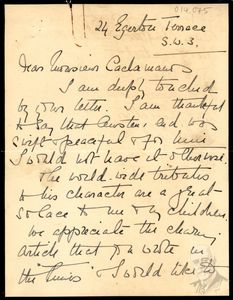 014,075
24 Egerton Terrace
S.W.3.
Dear Monsieur Caclamanos
I am deeply touched
by your letter. I am thankful
to say that Austen's end, was
swift & peaceful & for him
I would not have it otherwise.
The world wide tributes
to his character are a great
solace to me & my children.
we appreciate the charming
article that you wrote in
the Times & I would like to